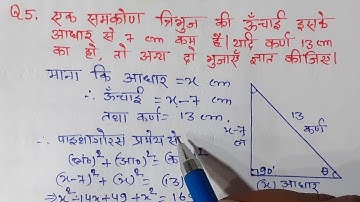 Q5. एक समकोण त्रिभुज की ऊँचाई इसके
आधार से 7 cm कम है। यदि कर्ण 13 cm
का हो, तो अन्य दो भुजाएँ ज्ञात कीजिए।
माना कि आधार = x cm
∴ ऊँचाई = x-7 cm
तथा कर्ण = 13 cm.
∴ पाइथागोरस प्रमेय से
(ल०)² + (आ०)² = (क 2
(x-7)² + (x)² = (13)
⇒ x² - 14x + 49 + x² = 16
x-7
13
कर्ण
90°
θ
(x) आधार